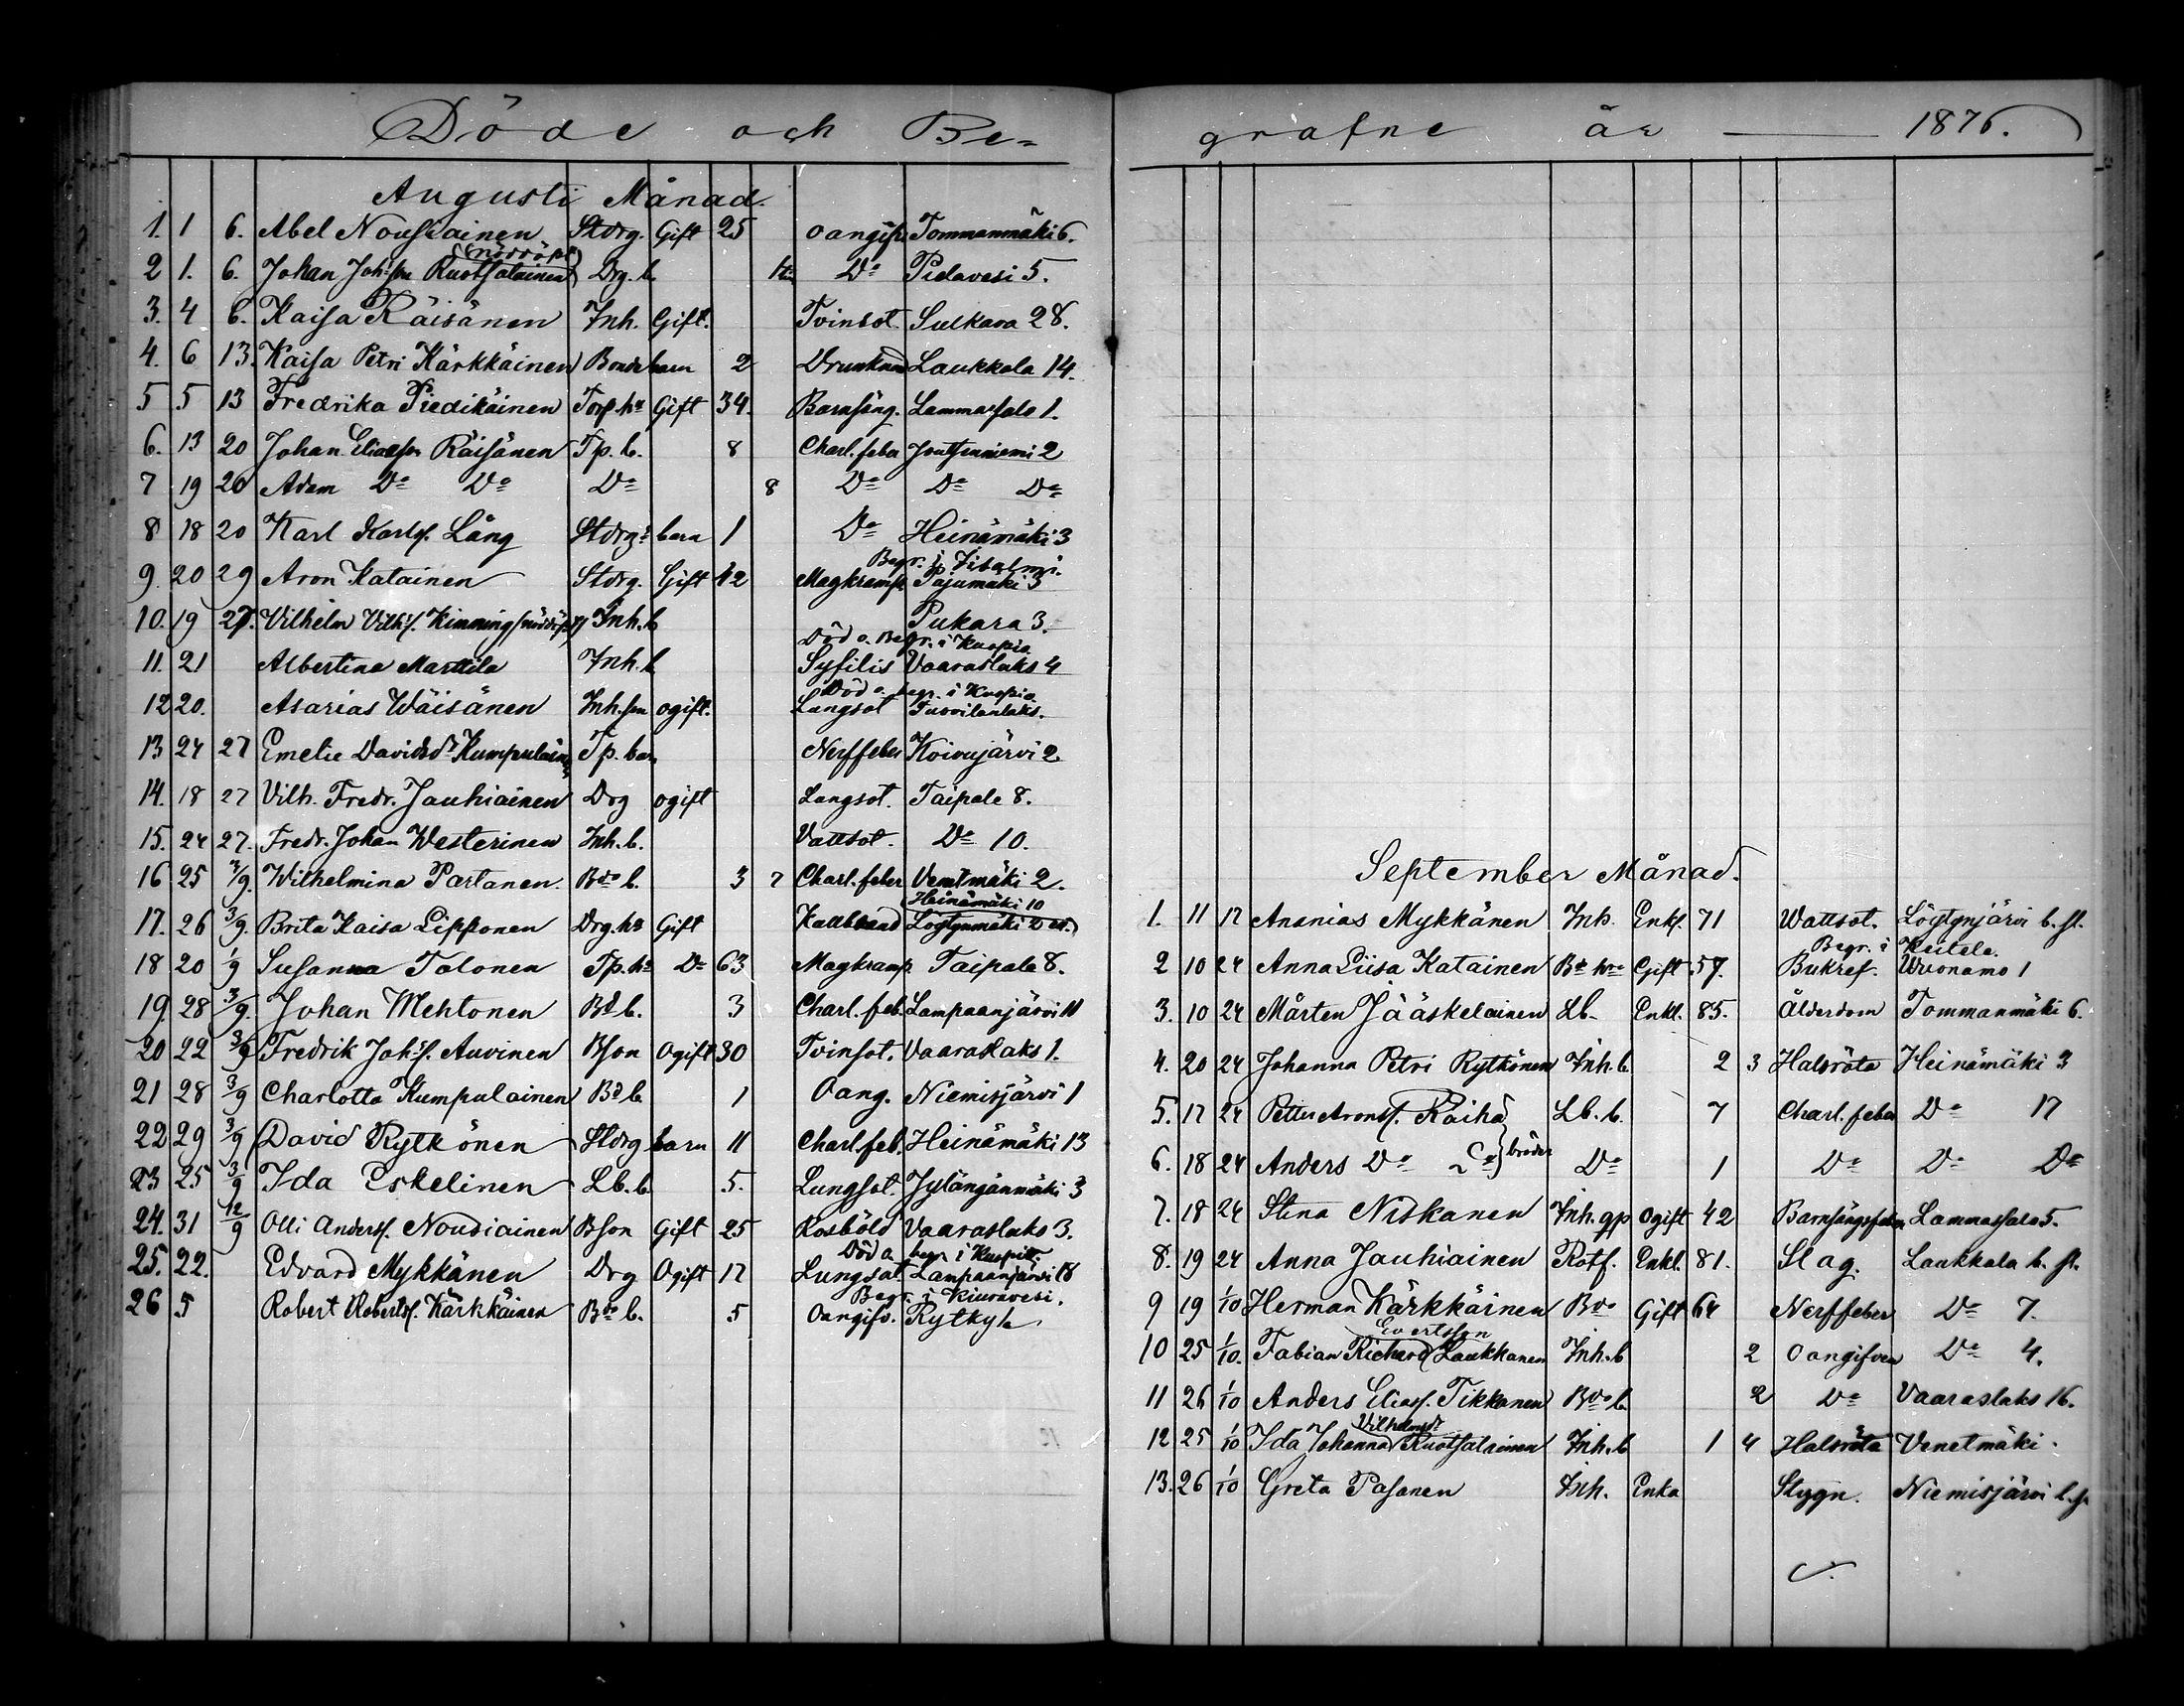 Döde och Be=
Augusti Månad.
1. 1 6. Abel Nousiainen Stdrg. Gift 25 oangifv. Tommanmäki 6.
(nöddöpt)
2 1. 6. Johan Joh:son Ruotsalainen Drg. b. Do Pielavesi 5.
3. 4 6. Kaisa Räisänen Inh. Gift. Tvinsot. Sulkava 28.
4. 6 13. Kaisa Petri Kärkkäinen Bonde barn 2 Drunknad Laukkala 14.
5 5 13 Fredrika Piedikäinen Torp. hu Gift 34. Barnsäng. Lammassalo 1.
6. 13 20 Johan Eliasson Räisänen Tp. b. 8 Charl. feber Joutsenniemi 2
7 19 20 Adam Do Do Do 8 Do Do Do
8 18 20 Karl Karlss. Lång Stdrgs barn 1 Do Heinämäki 3
Begr. i Iisalmi.
9. 20 29 Aron Katainen Stdrg. Gift 42 Magkramp Pajumäki 3
10. 19 27. Vilhelm Vilh:s. Kinning (nöddöpt) Inh. b Pukara 3.
Död o. Begr. i Kuopio
11. 21 Albertina Marttila Inh. b Syfilis Vaaraslaks 4
Död o. begr. i Kuopio
12 20. Asarias Wäisänen Inh. son ogift. Lungsot Tuovilanlaks.
13 24 27 Emelie Davidsdr Kumpulainen Tp. barn Nerffeber Koivujärvi 2
14. 18 27 Vilh. Fredr. Jauhiainen Drg ogift Lungsot. Taipale 8.
15. 24 27. Fredr. Johan Westerinen Inh. b. Vattsot. Do 10.
16 25 3/9. Wilhelmina Partanen. Bde b. 3 7 Charl. feber Venetmäki 2.
Heinämäki 10
17. 26 3/9. Brita Kaisa Lipponen Drg. hu Gift Kallbrand Löytynmäki 2
18 20 1/9 Susanna Tolonen Tp. hu Do 63 Magkramp Taipale 8.
19. 28 3/9. Johan Mehtonen Bd b. 3 Charl. feb. Lampaanjärvi 11
20 22 3/9 Fredrik Joh:s. Auvinen Bson Ogift 30 Tvinsot. Vaaraslaks 1.
21 28 3/9 Charlotta Kumpulainen Bd b 1 Oang. Niemisjärvi 1
22 29 3/9 David Rytkönen Stdrg barn 11 Charl. feb. Heinämäki 13
23 25 3/9 Ida Eskelinen Lb. b. 5. Lungsot. Jylängänmäki 3
24. 31 12/9 Olli Anderss. Nousiainen Bson Gift 25 Kosböld Vaaraslaks 3.
Död o. begr. i Kuopio.
25. 22. Edvard Mykkänen Drg Ogift 17 Lungsot Lampaanjärvi 18
Begr. i Kiuruvesi.
26 5 Robert Robertss. Kärkkäinen Bde b. 5 Oangifv. Rytky
grafne år 1876.
September Månad.
1. 11 17 Ananias Mykkänen Inh. Enkl. 71 Wattsot. Löytynjärvi b. st.
Begr. i Keitele.
2 10 24 Anna Liisa Katainen Bde Gift 57. Bukref. Wuonamo 1
3. 10 24 Mårten Jääskelainen Lb. Enkl. 85. Ålderdom Tommanmäki 6.
4. 20 24 Johanna Petri Rytkönen Inh. b. 2 3 Halsröta Heinämäki 3
5. 17 24 Petter Aronss. Raiha Lb. b. 7 Charl. feber Do 17
6. 18 24 Anders Do Do bröder Do 1 Do Do Do
7. 18 24 Stina Niskanen Inh. qp ogift 42 Barnsängsfeber Lammassalo 5.
8. 19 24 Anna Jauhiainen Rotf. Enkl. 81. Slag. Laukkala b. st.
9 19 1/10 Herman Kärkkäinen Bde Gift 64 Nerffeber Do 7.
Evertsson
10 25 1/10. Fabian Richard Laukkanen Inh. b 2 Oangifven Do 4.
11 26 1/10 Anders Eliass. Tikkanen Bde b. 2 Do Vaaraslaks 16.
Vilhelmsdr
12 25 1/10 Ida Johanna Ruotsalainen Inh. b 1 4 Halsröta Venetmäki.
13. 26 1/10 Greta Pasanen Inh. Enka Stygn. Niemisjärvi b. st